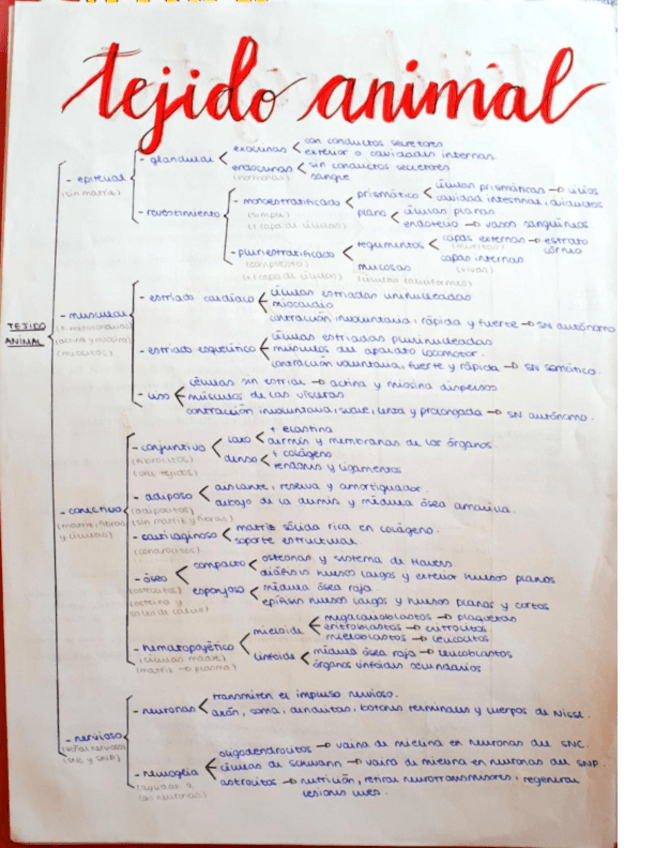 tejido animal
TEJIDO ANIMAL
- epitelial
(sin matriz)
- glandular
exocrinas
con conductos secretores
exterior o cavidades internas
endocrinas
(hormonas)
sin conductos secretores
sangre
- revestimiento
- monoestratificado
(simple)
(1 capa de células)
prismático
células prismáticas → cilios
cavidad intestinal, oviductos
plano
células planas
endotelio → vasos sanguíneos
- pluriestratificado
(compuesto)
(+ capa de células)
tegumentos
capas externas → estrato córneo
(muertas)
capas internas
(vivas)
mucosas
(células caliciformes)
- muscular
(+ mitocondrias)
(actina y miosina)
(miocitos)
- estriado cardíaco
células estriadas uninucleadas
miocardio
contracción involuntaria, rápida y fuerte → SN autónomo
- estriado esquelético
células estriadas plurinucleadas
músculos del aparato locomotor.
contracción voluntaria, fuerte y rápida → SN somático.
- liso
células sin estriar → actina y miosina dispersos
músculos de las vísceras
contracción involuntaria, suave, lenta y prolongada → SN autónomo.
- conectivo
(matriz, fibras y células)
- conjuntivo
(fibrocitos)
(une tejidos)
laxo
+ elastina
dermis y membranas de los órganos.
denso
+ colágeno
tendones y ligamentos
- adiposo
(adipocitos)
(sin matriz y fibras)
aislante, reserva y amortiguador.
debajo de la dermis y médula ósea amarilla.
- cartilaginoso
(condrocitos)
matriz sólida rica en colágeno.
soporte estructural.
- óseo
(osteocitos)
(osteína y sales de calcio)
compacto
osteonas y sistema de Havers
diáfisis huesos largos y exterior huesos planos
esponjoso
médula ósea roja
epífisis huesos largos y huesos planos y cortos
- hematopoyético
(células madre)
(matriz → plasma)
mieloide
megacarioblastos → plaquetas
eritroblastos → eritrocitos
mieloblastos → leucocitos
linfoide
médula ósea roja → leucoblastos
órganos linfoides secundarios
- nervioso
(señal nerviosa)
(SNC y SNP)
- neuronas
transmiten el impulso nervioso.
axón, soma, dendritas, botones terminales y cuerpos de Nissl.
- neuroglía
(ayudar a las neuronas)
oligodendrocitos → vaina de mielina en neuronas del SNC.
células de schwann → vaina de mielina en neuronas del SNP.
astrocitos → nutrición, retirar neurotransmisores, regenerar
lesiones